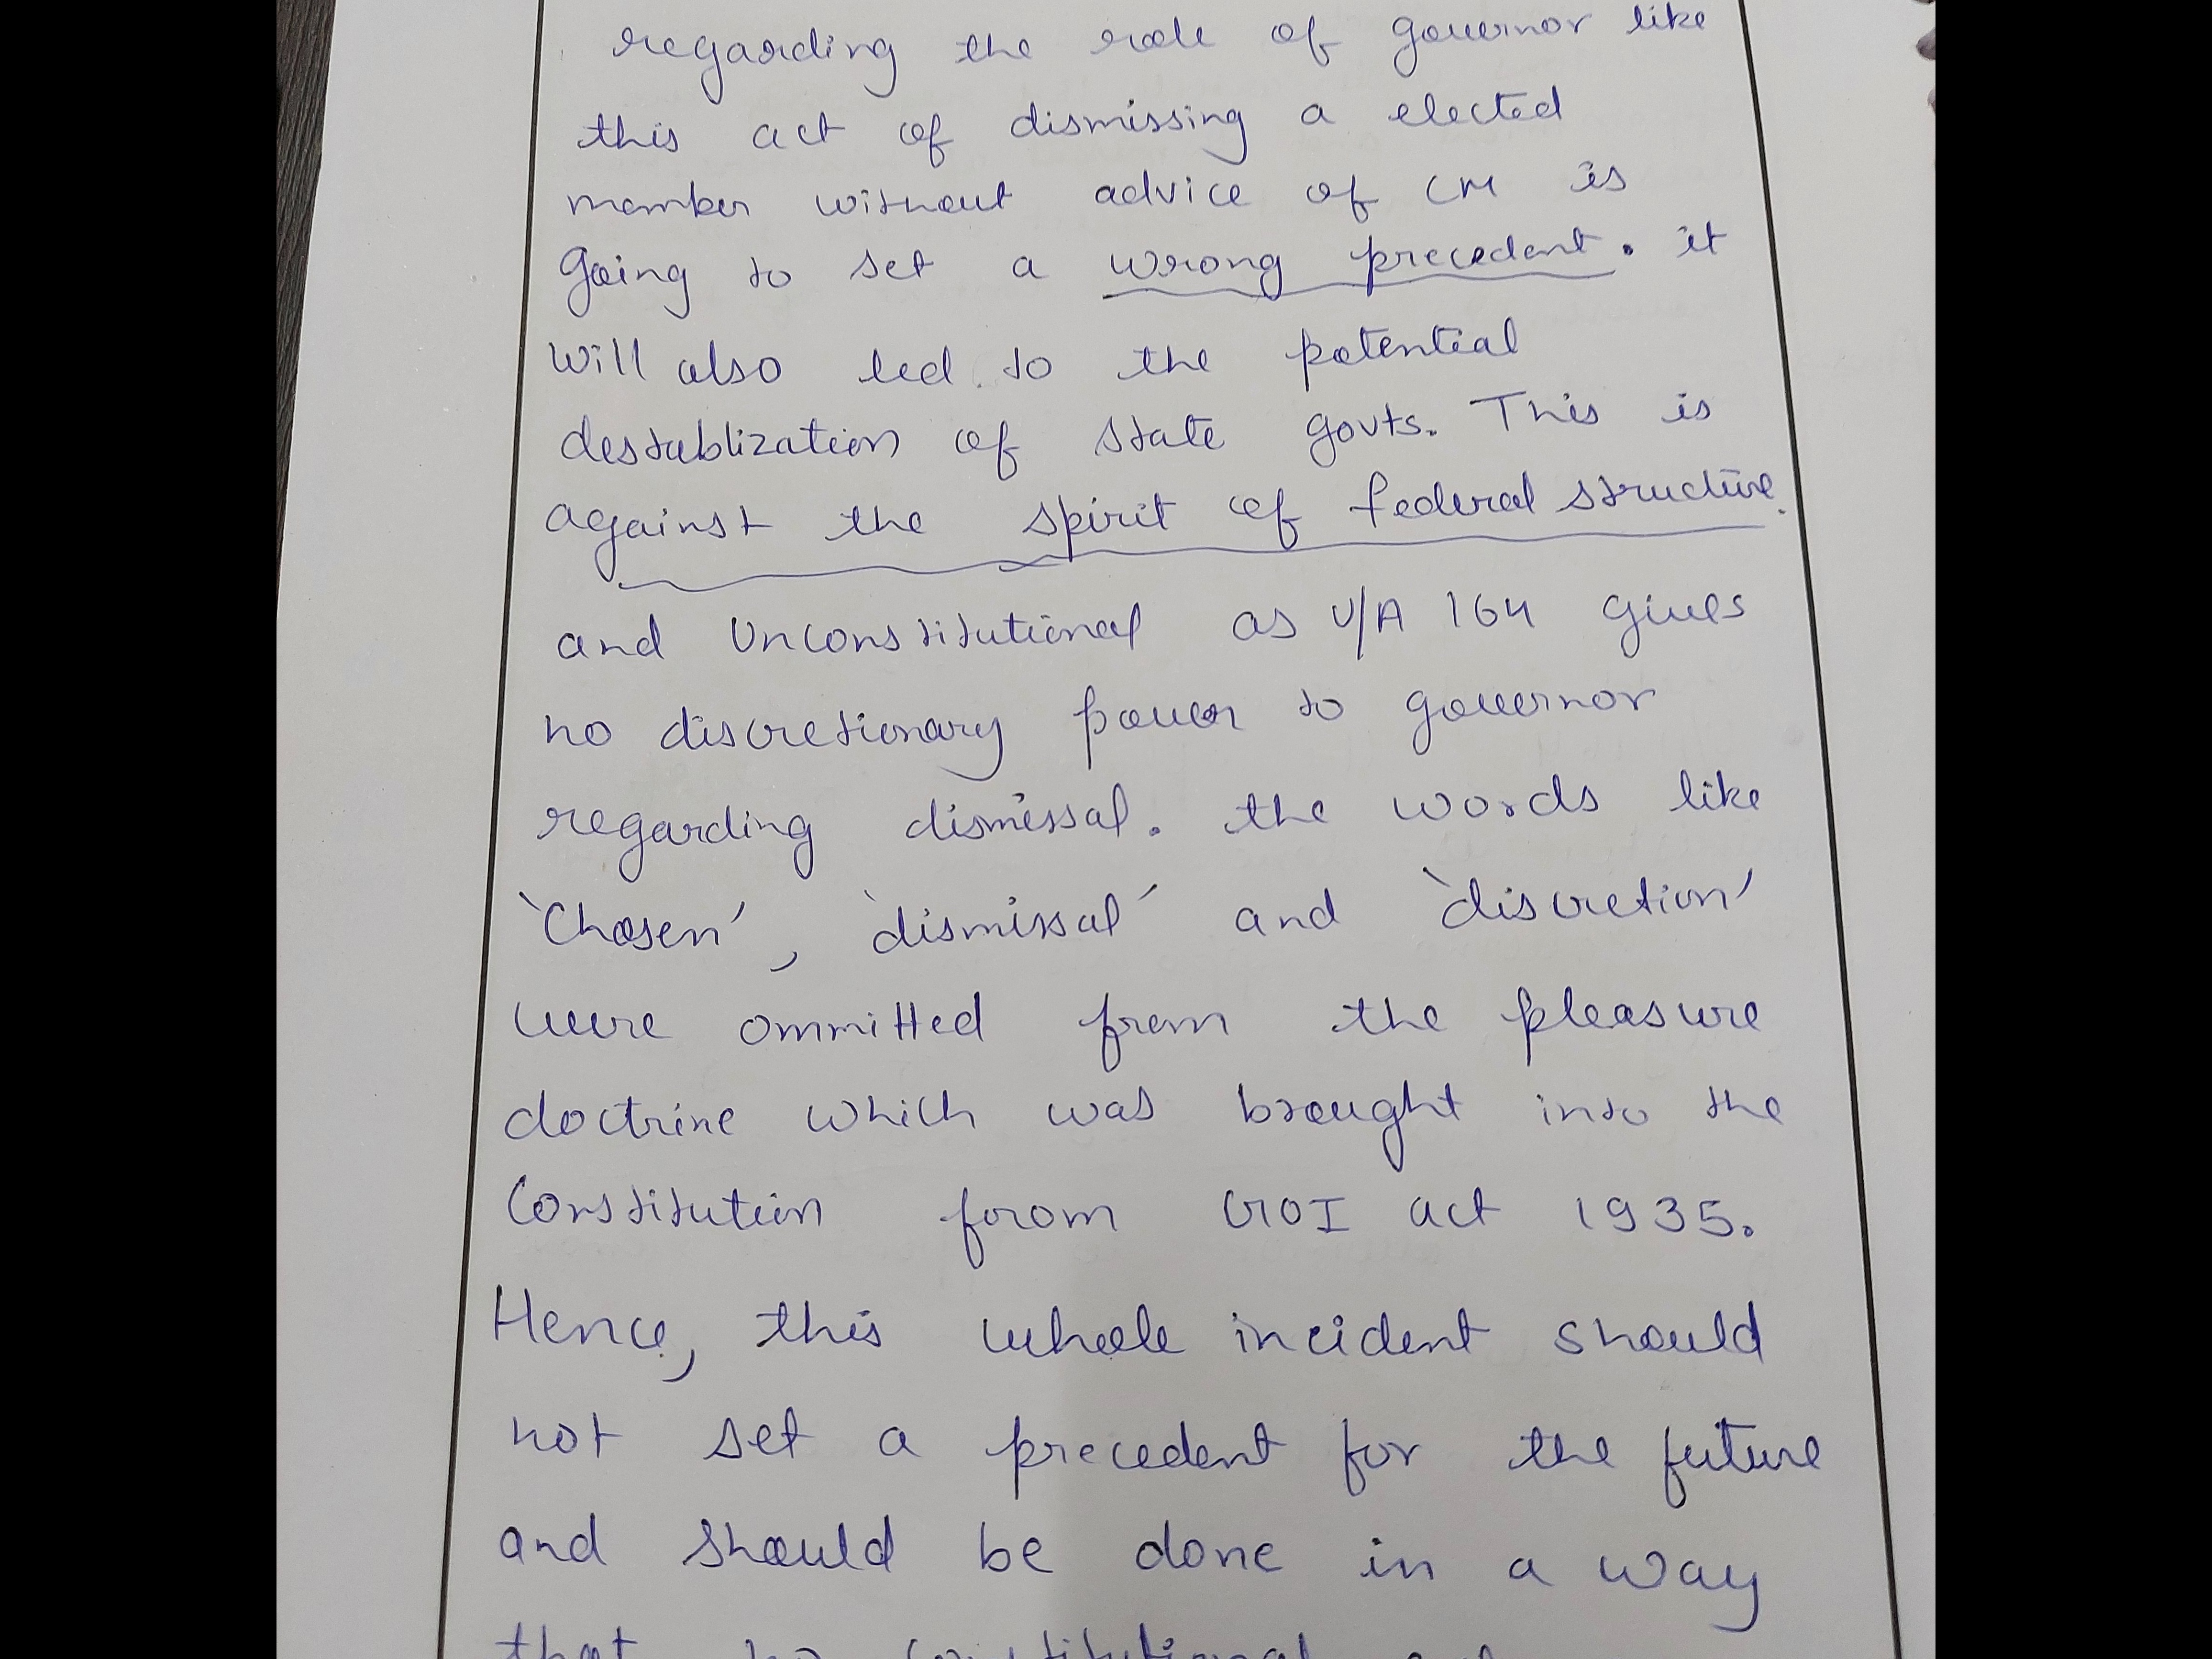 regarding the role of governor like
this act of dismissing a elected
member without advice of CM is
going to set a wrong precedent. it
will also led to the potential
destablization of state govts. This is
against the spirit of federal structure.
and Unconstitutional as U/A 164 gives
no discretionary power to governor
regarding dismissal. the words like
'Chosen', 'dismissal' and 'discretion'
were ommitted from the pleasure
doctrine which was brought into the
Constitution from GOI act 1935.
Hence, this whole incident should
not set a precedent for the future
and should be done in a way
that constitutional